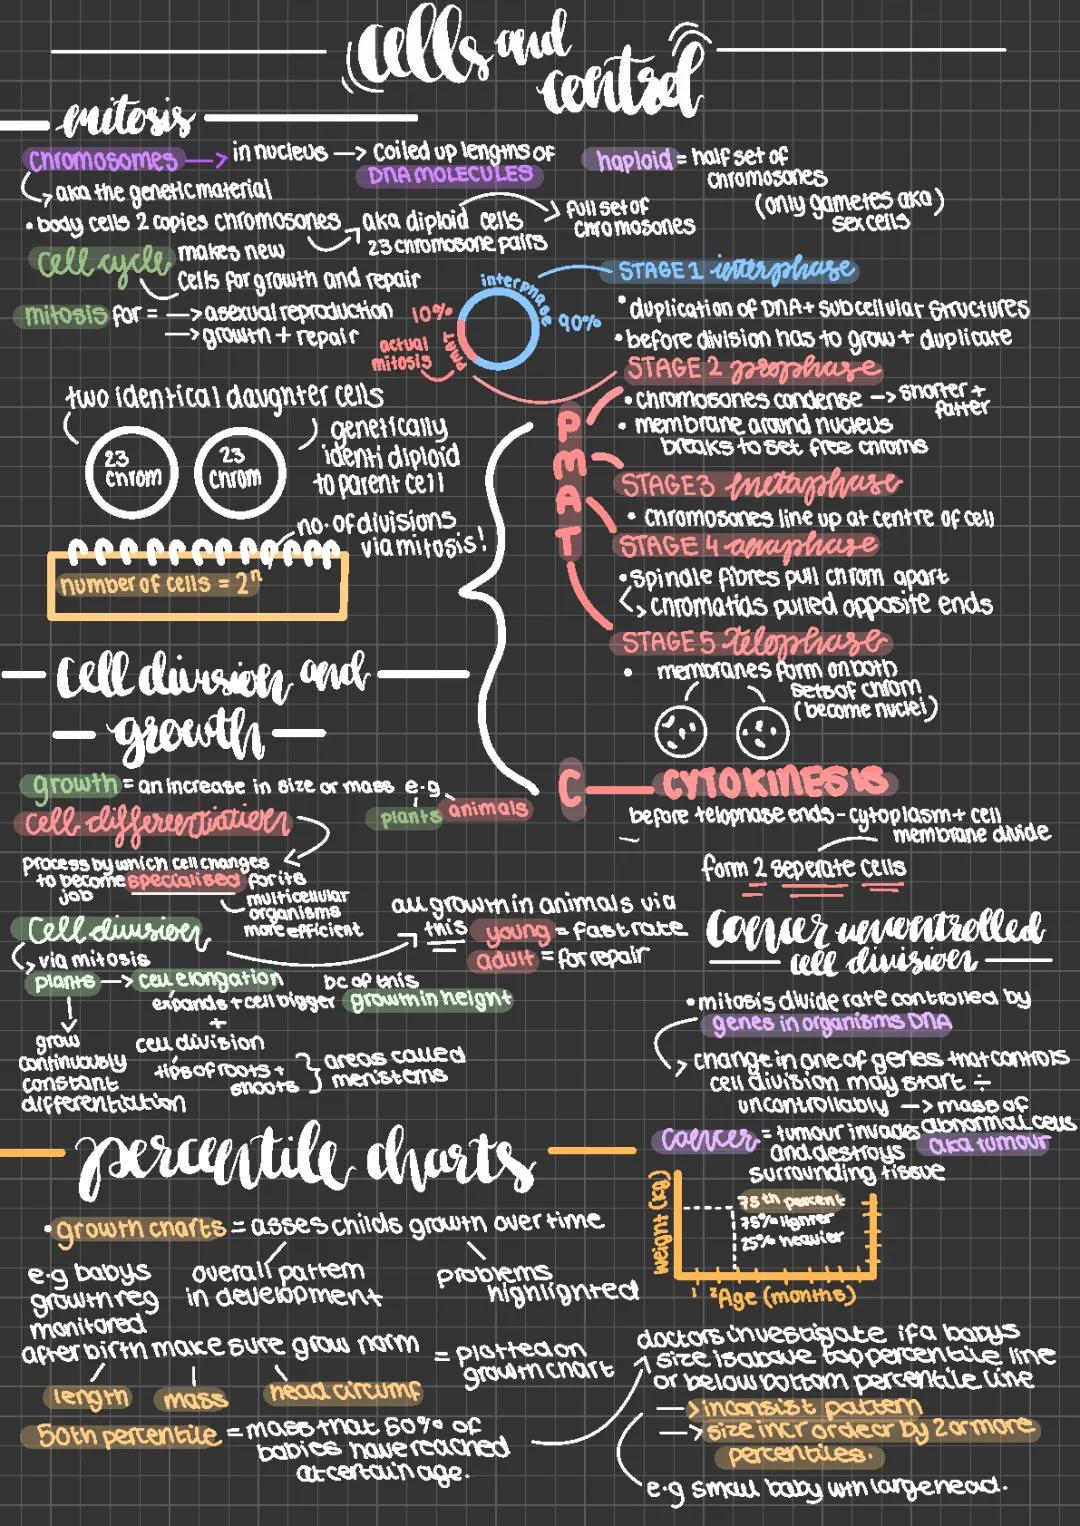 cells and
control
mitosis
chromosomes —> in nucleus —> coiled up lengths of
DNA MOLECULES
haploid = half set of
chromosones
(only gametes aka)
sex cells
↳ aka the genetic material
• body cells 2 copies chromosones
aka diploid cells
23 chromosone pairs
full set of
chromosones
cell cycle makes new
cells for growth and repair
mitosis for = —> asexual reproduction
—> growth + repair
interphase
10%
90%
actual
mitosis
PMAT
STAGE 1 interphase
• duplication of DNA + subcellular structures
• before division has to grow + duplicate
STAGE 2 prophase
• chromosones condense —> shorter +
fatter
• membrane around nucleus
breaks to set free chroms
STAGE 3 mettaphase
• chromosones line up at centre of cell
STAGE 4 anaphase
• spindle fibres pull chrom apart
↳ chromatids pulled opposite ends
STAGE 5 telophase
• membranes form on both
sets of chrom
(become nuclei)
P
M
A
T
C
CYTOKINESIS
before telophase ends - cytoplasm + cell
membrane divide
form 2 seperate cells
two identical daughter cells
23
chrom
23
chrom
genetically
identi diploid
to parent cell
no. of divisions
via mitosis!
number of cells = 2ⁿ
cell division and
growth
growth = an increase in size or mass e.g
plants
animals
cell differentiation
process by which cell changes
to become specialised for its
job
multicellular
organisms
more efficient
cell division
↳ via mitosis
all growth in animals via
this
young = fast rate
adult = for repair
plants —> cell elongation
expands + cell bigger
bc of this
growth in height
+
cell division
tips of roots +
shoots
} areas called
meristems
grow
continuously
constant
differentiation
cancer uncontrolled
cell division
• mitosis divide rate controlled by
genes in organisms DNA
change in one of genes that controls
cell division may start ÷
uncontrollably —> mass of
abnormal cells
aka tumour
cancer = tumour invades
and destroys
surrounding tissue
percentile charts
• growth charts = asses childs growth over time
e.g babys
growth reg
monitored
overall pattern
in development
problems
highlighted
after birth make sure grow norm
= plotted on
growth chart
length
mass
head circumf
50th percentile = mass that 50% of
babies have reached
at certain age.
weight (kg)
75th percent
75% lighter
25% heavier
1 2
Age (months)
doctors investigate if a babys
size is above top percentile line
or below bottom percentile line
—> inconsist pattern
—> size incr or decr by 2 or more
percentiles.
e.g small baby wth large head.